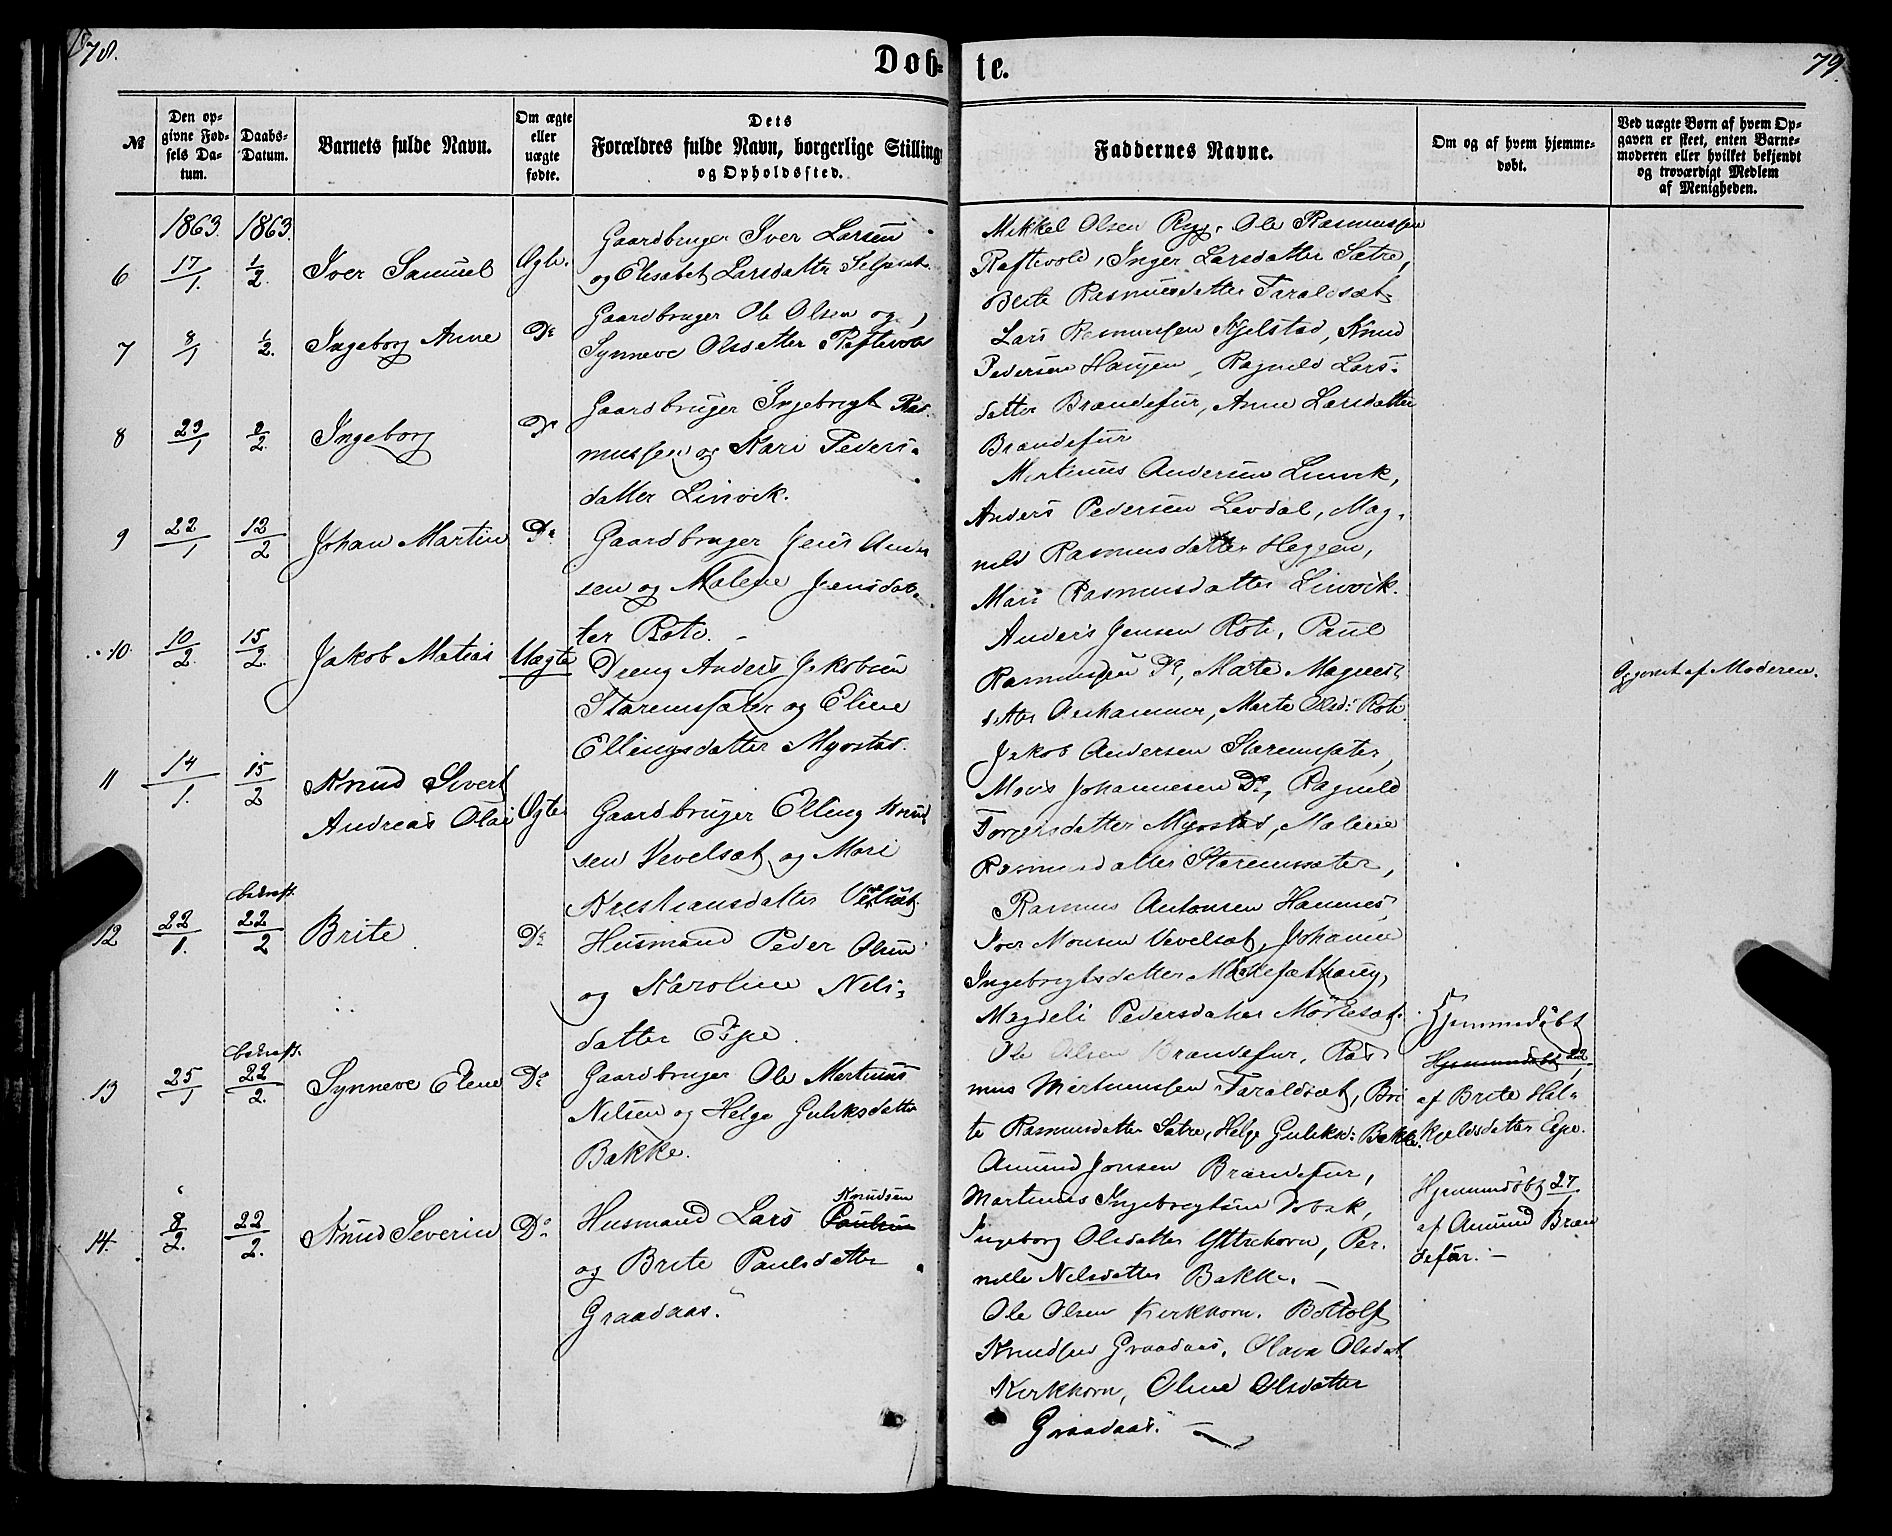 78.
Døb-
te.
79
№
Den op-
givne Fød-
sels Da-
tum.
Daabs-
Datum.
Barnets fulde Navn.
Om ægte
eller
uægte
fødte.
Dets
Forældres fulde Navn, borgerlige Stilling
og Opholdssted.
Faddernes Navne.
Om og af hvem hjemme-
døbt.
Ved uægte Børn af hvem Op-
gaven er skeet, enten Barne-
moderen eller hvilket bekjendt
og troværdigt Medlem
af Menigheden.
1863. 1863.
6 17/1. 1/2. Iver Samuel Ægte.
Gaardbruger Iver Larsen
og Elisabet Larsdatter
Mikkel Olsen Ryg, Ole Rasmussen
Raftevold, Inger Larsdatter Sætre,
Brite Rasmusdatter Taraldsæt
7 8/1 1/2. Ingeborg Anne Do
Gaardbruger Ole Olsen og
Synneve Olsdatter Raftevold
Lars Rasmussen Kjelstad, Knud
Pedersen Haugen, Ragnild Lars-
datter Brandefur, Anne Larsdatter
Brandefur
8 23/1 8/2. Ingeborg Do
Gaardbruger Ingebrigt Ras-
mussen og Kari Peders-
datter Linvik.
Martinus Andersen Linvik,
Anders Pedersen Levdal, Mag-
nild Rasmusdatter Heggen,
Mari Rasmusdatter Linvik.
9 22/1 12/2 Johan Martin Do
Gaardbruger Jens Ander
sen og Malene Jensdat-
ter Rote.
Anders Jensen Rote, Paul
Rasmussen Do, Mate Magnes-
datter, Marte Olsd: Rote.
10 10/2. 15/2. Jakob Matias Uægte
Dreng Anders Jakobsen
Staremsæter og Eline
Ellingsdatter Myostad.
Jakob Andersen Staremsæter,
Mons Johannesen Do, Ragnild
Torgersdatter Myostad, Malene
Rasmusdatter Staremsæter,
Opgivet af Moderen.
11 14/1. 15/2 Knud Sivert
Andreas Olai Ægte
Gaardbruger Elling Knud
sen Vevelsæt og Mari
Kristiansdatter Vevelsæt.
Rasmus Antonsen Hamnes,
Iver Monsen Vevelsæt, Johanne
Ingebrigtsdatter
Magdeli Pedersdatter
12 22/1. bekræft. 22/2 Brite Do
Husmand Peder Olsen
og Karoline Nils-
datter Espe.
Ole Olsen Brandefur, Ras
mus Martinussen Taraldsæt, Bri
te Rasmusdatter Sætre, Helge Guliksd: Bakke.
Hjemmedøbt
Hjemmedøbt 22/1
af Brite Hal-
kjeldsdatter Espe.
13 25/1 bekræft. 22/2. Synneve Elene Do
Gaardbruger Ole Martinus
Nilsen og Helge Guliksdatter
Bakke.
Amund Jonsen Brandefur,
Martinus Ingebrigtsen
Ingeborg Olsdatter Yttrehorn, Per-
nille Nilsdatter Bakke.
Hjemmedøbt 27/1
af Amund Bran
defur.
14. 8/2. 22/2. Knud Severin Do
Husmand Lars Paulsen Knudsen
og Brite Paulsdatter
Graadaas.
Ole Olsen Kirkhorn, Bottolf
Knudsen Graadaas, Olava Olsdat
Kirkhorn, Oline Olsdatter
Graadaas.